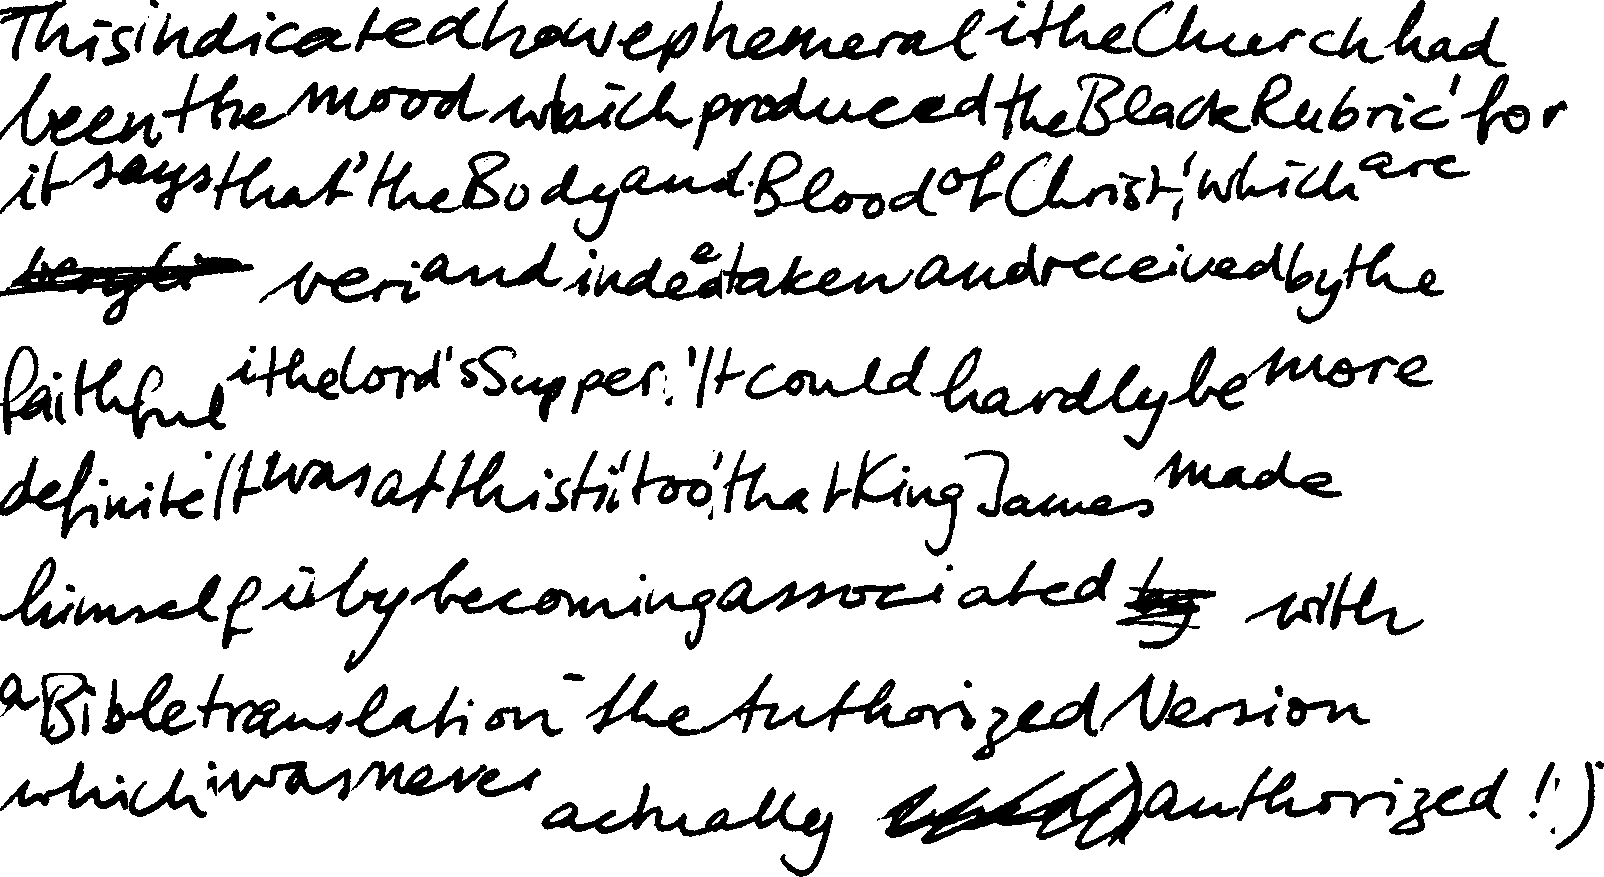 This indicated how ephemeral i the Church had
been the mood which produced the Black Rubric' for
it says that 'the Body and Blood of Christ,' which are
veri and indeed taken and received by the
faithful i the Lord's Supper.' It could hardly be more
definite. It was at this ti, too, that King James made
himself i by becoming associated with
a Bible translation - the Authorized Version
which was never actually authorized! )